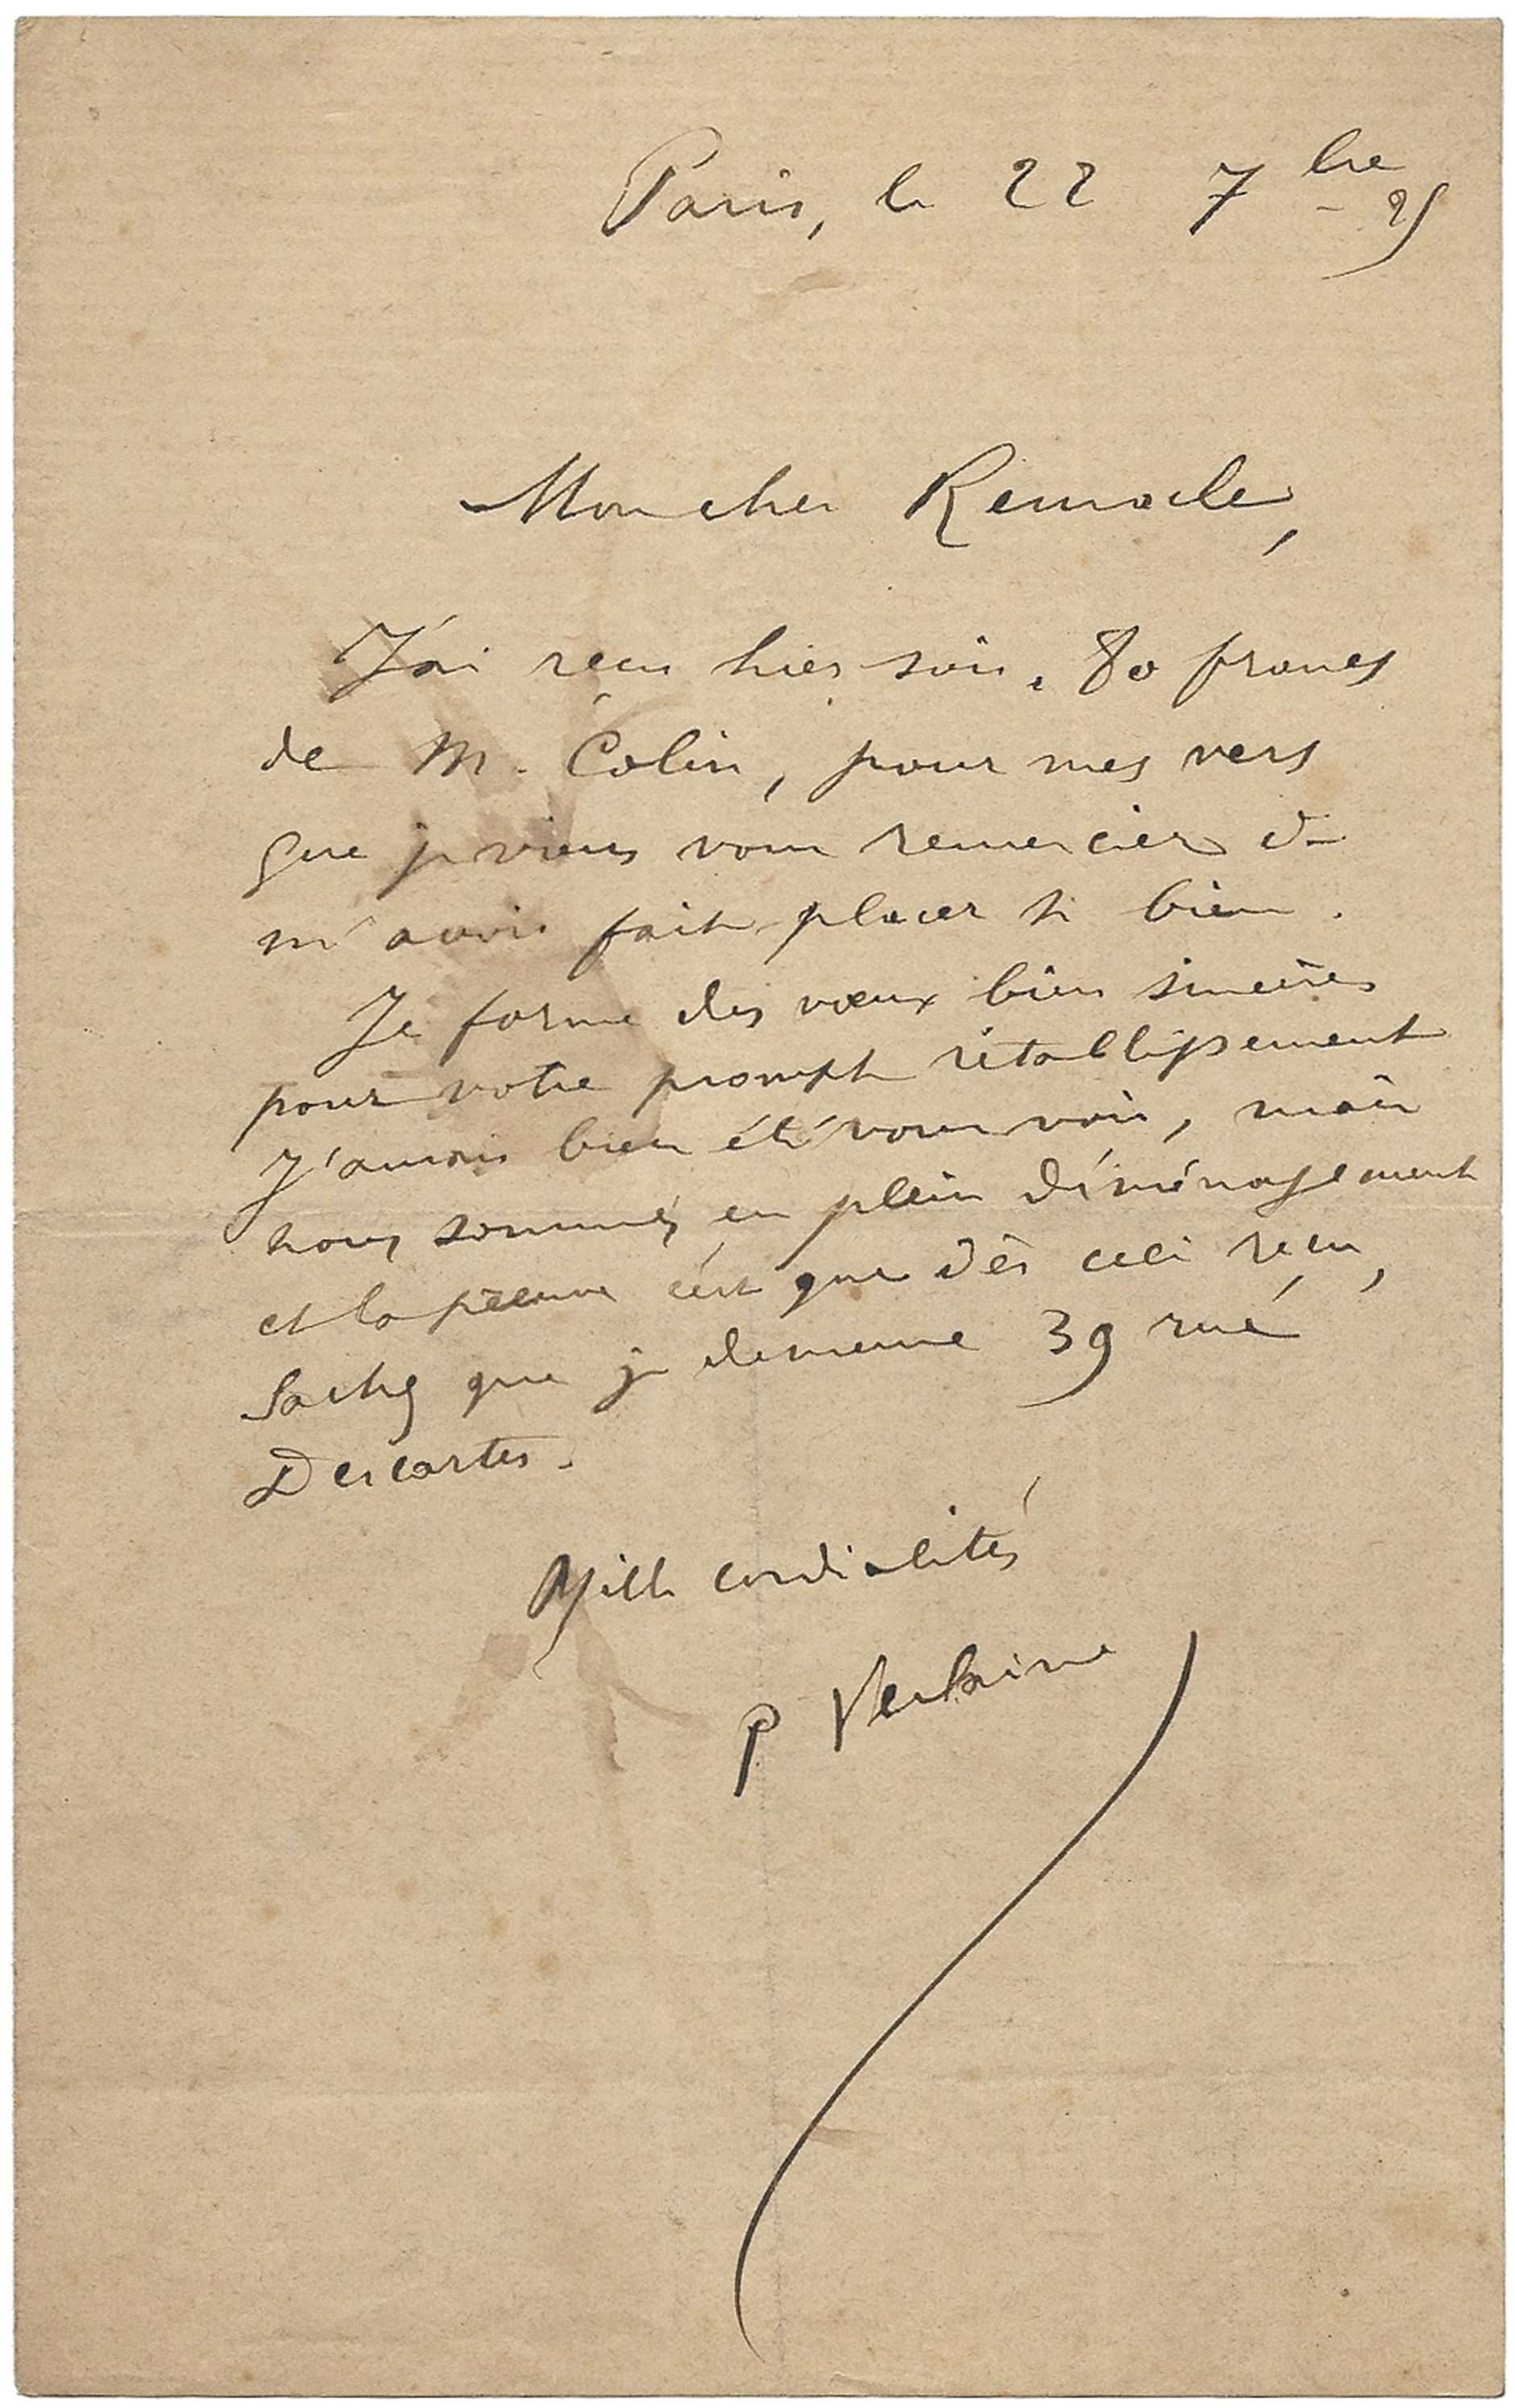 Paris, le 22 7bre 95
Mon cher Remacle,
J'ai reçu hier soir, 80 francs
de M. Colin, pour mes vers
que je viens vous remercier de
m'avoir fait placer si bien.
Je forme des vœux bien sincères
pour votre prompt rétablissement
J'aurais bien été vous voir, mais
nous sommes en plein déménagement
et la preuve c'est que dès ceci reçu,
sachez que je demeure 39 rue
Descartes.
Mille cordialités
P Verlaine